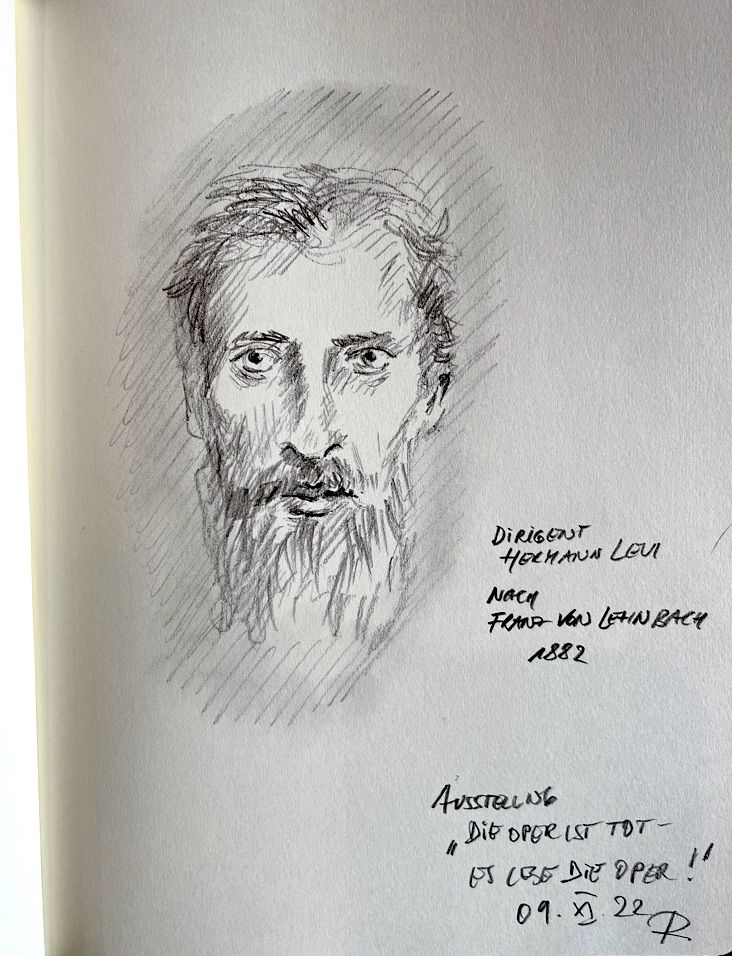 DIRIGENT
HERMANN LEVI
NACH
FRANZ VON LEHNBACH
1882
AUSSTELLNG
„DIE OPER IST TOT –
ES LEBE DIE OPER!"
09. XI. 22 R